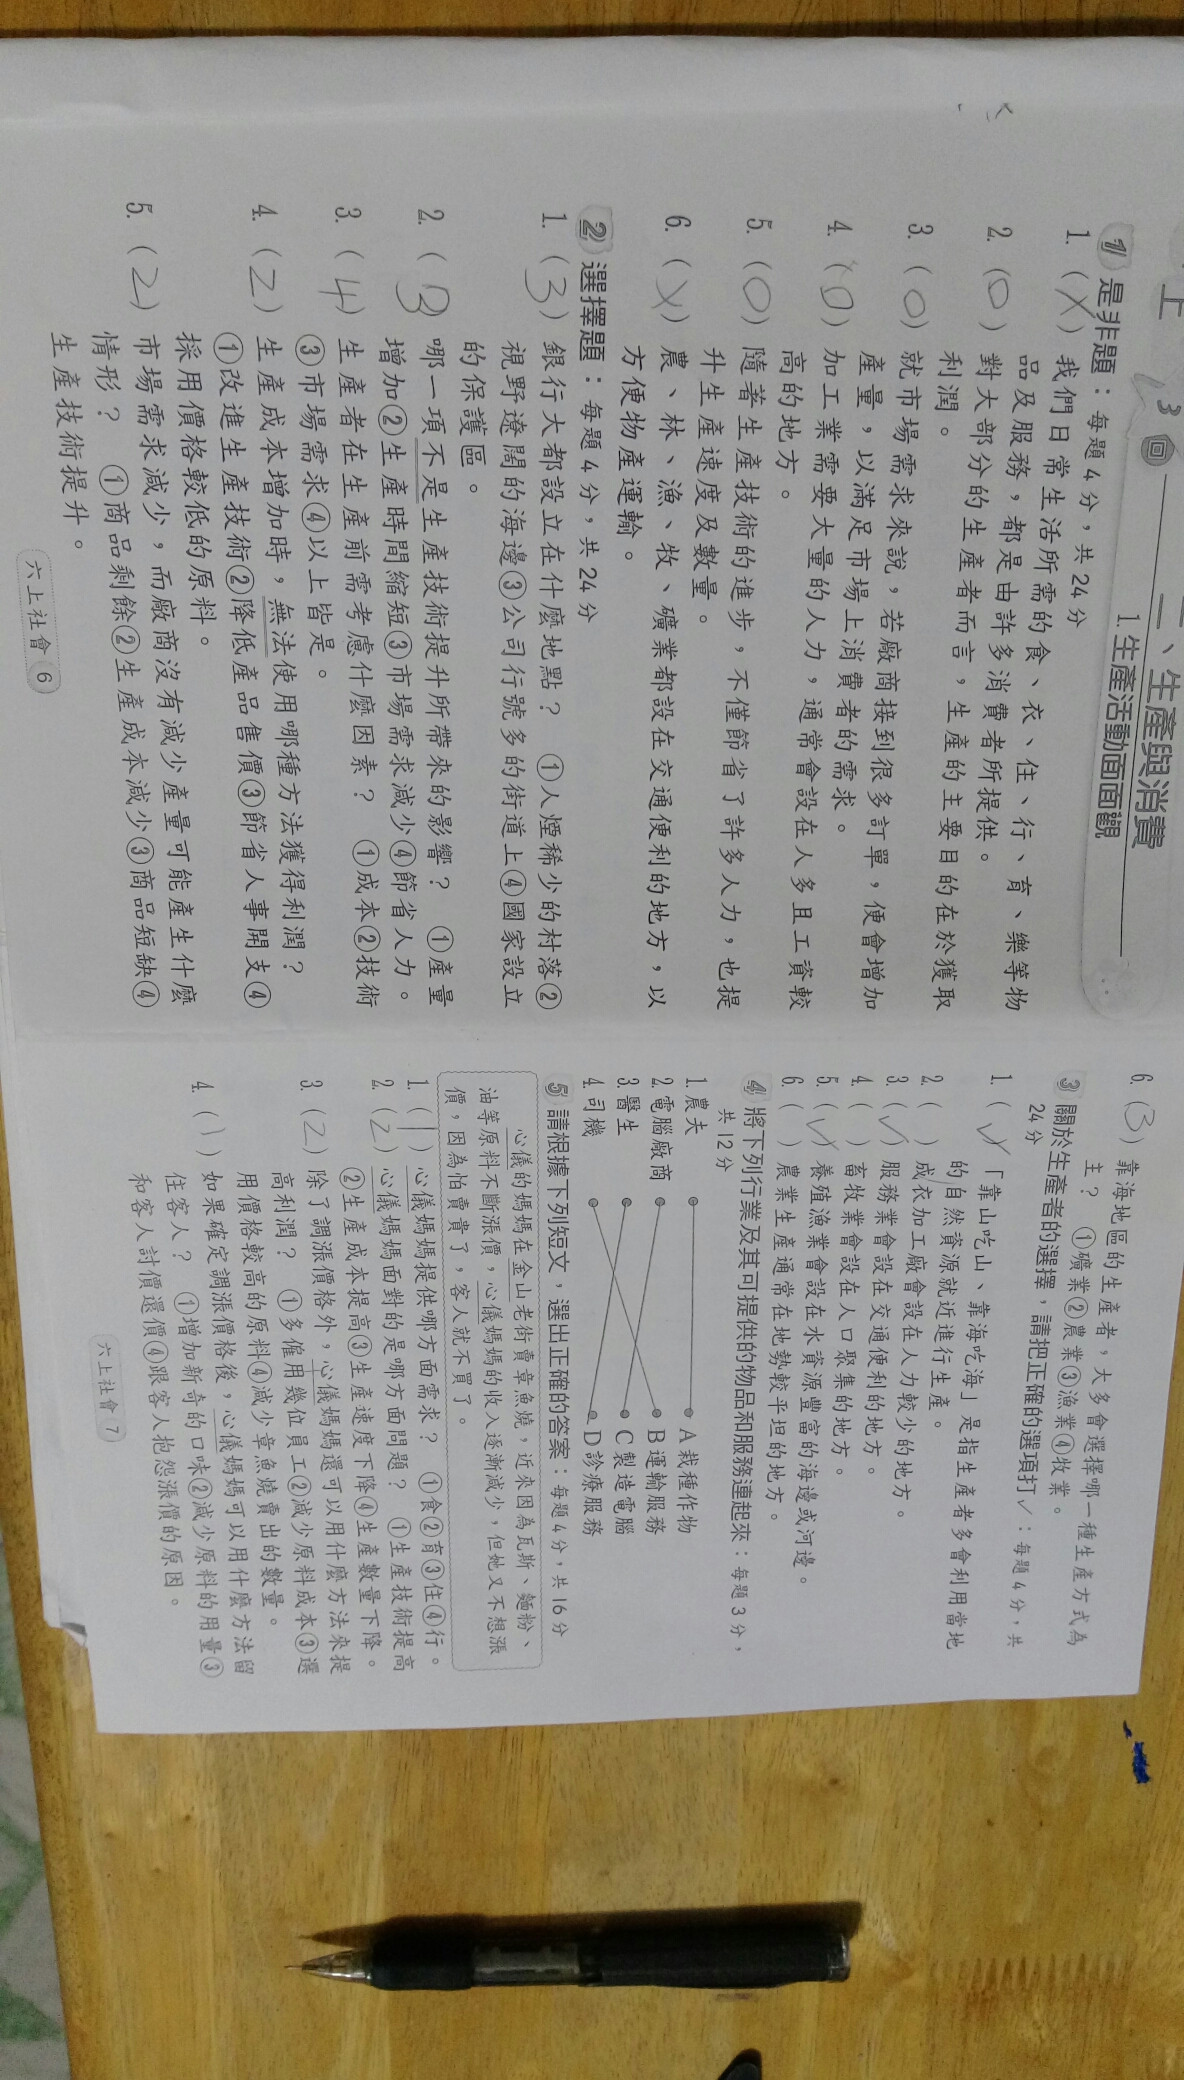 上
3 回
二、生產與消費
1.生產活動面面觀
1 是非題：每題4分，共24分
1.（X）我們日常生活所需的食、衣、住、行、育、樂等物
品及服務，都是由許多消費者所提供。
2.（O）對大部分的生產者而言，生產的主要目的在於獲取
利潤。
3.（O）就市場需求來說，若廠商接到很多訂單，便會增加
產量，以滿足市場上消費者的需求。
4.（O）加工業需要大量的人力，通常會設在人多且工資較
高的地方。
5.（O）隨著生產技術的進步，不僅節省了許多人力，也提
升生產速度及數量。
6.（X）農、林、漁、牧、礦業都設在交通便利的地方，以
方便物產運輸。
2 選擇題：每題4分，共24分
1.（3）銀行大都設立在什麼地點？　①人煙稀少的村落②
視野遼闊的海邊③公司行號多的街道上④國家設立
的保護區。
2.（3）哪一項不是生產技術提升所帶來的影響？　①產量
增加②生產時間縮短③市場需求減少④節省人力。
3.（4）生產者在生產前需考慮什麼因素？　①成本②技術
③市場需求④以上皆是。
4.（2）生產成本增加時，無法使用哪種方法獲得利潤？
①改進生產技術②降低產品售價③節省人事開支④
採用價格較低的原料。
5.（2）市場需求減少，而廠商沒有減少產量可能產生什麼
情形？　①商品剩餘②生產成本減少③商品短缺④
生產技術提升。
六上社會 6
6.（3）靠海地區的生產者，大多會選擇哪一種生產方式為
主？　①礦業②農業③漁業④牧業。
3 關於生產者的選擇，請把正確的選項打✓：每題4分，共
24分
1.（✓）「靠山吃山、靠海吃海」是指生產者多會利用當地
的自然資源就近進行生產。
2.（　）成衣加工廠會設在人力較少的地方。
3.（✓）服務業會設在交通便利的地方。
4.（　）畜牧業會設在人口聚集的地方。
5.（✓）養殖漁業會設在水資源豐富的海邊或河邊。
6.（　）農業生產通常在地勢較平坦的地方。
4 將下列行業及其可提供的物品和服務連起來：每題3分，
共12分
1.農夫　　　　A 栽種作物
2.電腦廠商　　B 運輸服務
3.醫生　　　　C 製造電腦
4.司機　　　　D 診療服務
5 請根據下列短文，選出正確的答案：每題4分，共16分
心儀的媽媽在金山老街賣章魚燒，近來因為瓦斯、麵粉、
油等原料不斷漲價，心儀媽媽的收入逐漸減少，但她又不想漲
價，因為怕賣貴了，客人就不買了。
1.（1）心儀媽媽提供哪方面需求？　①食②育③住④行。
2.（2）心儀媽媽面對的是哪方面問題？　①生產技術提高
②生產成本提高③生產速度下降④生產數量下降。
3.（2）除了調漲價格外，心儀媽媽還可以用什麼方法來提
高利潤？　①多僱用幾位員工②減少原料成本③選
用價格較高的原料④減少章魚燒賣出的數量。
4.（1）如果確定調漲價格後，心儀媽媽可以用什麼方法留
住客人？　①增加新奇的口味②減少原料的用量③
和客人討價還價④跟客人抱怨漲價的原因。
六上社會 7